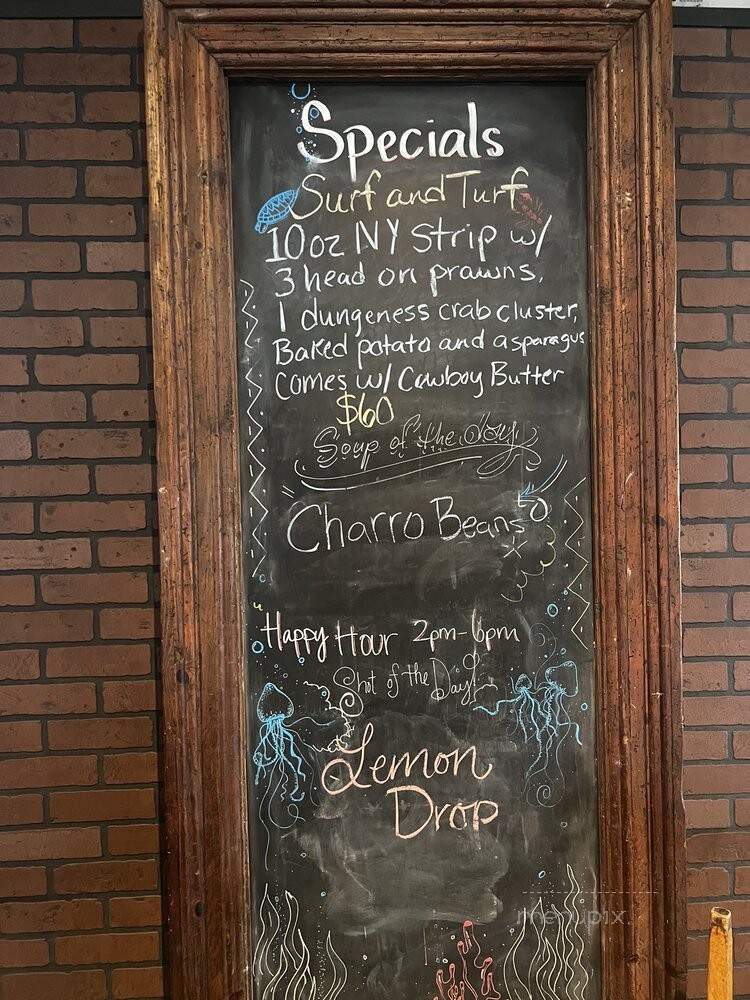 Specials
Surf and Turf
10oz NY Strip w/
3 head on prawns,
1 dungeness crab cluster,
Baked potato and asparagus
Comes w/ Cowboy Butter
$60
Soup of the day
Charro Beans
Happy Hour 2pm-6pm
Shot of the Day!
Lemon
Drop
menupix